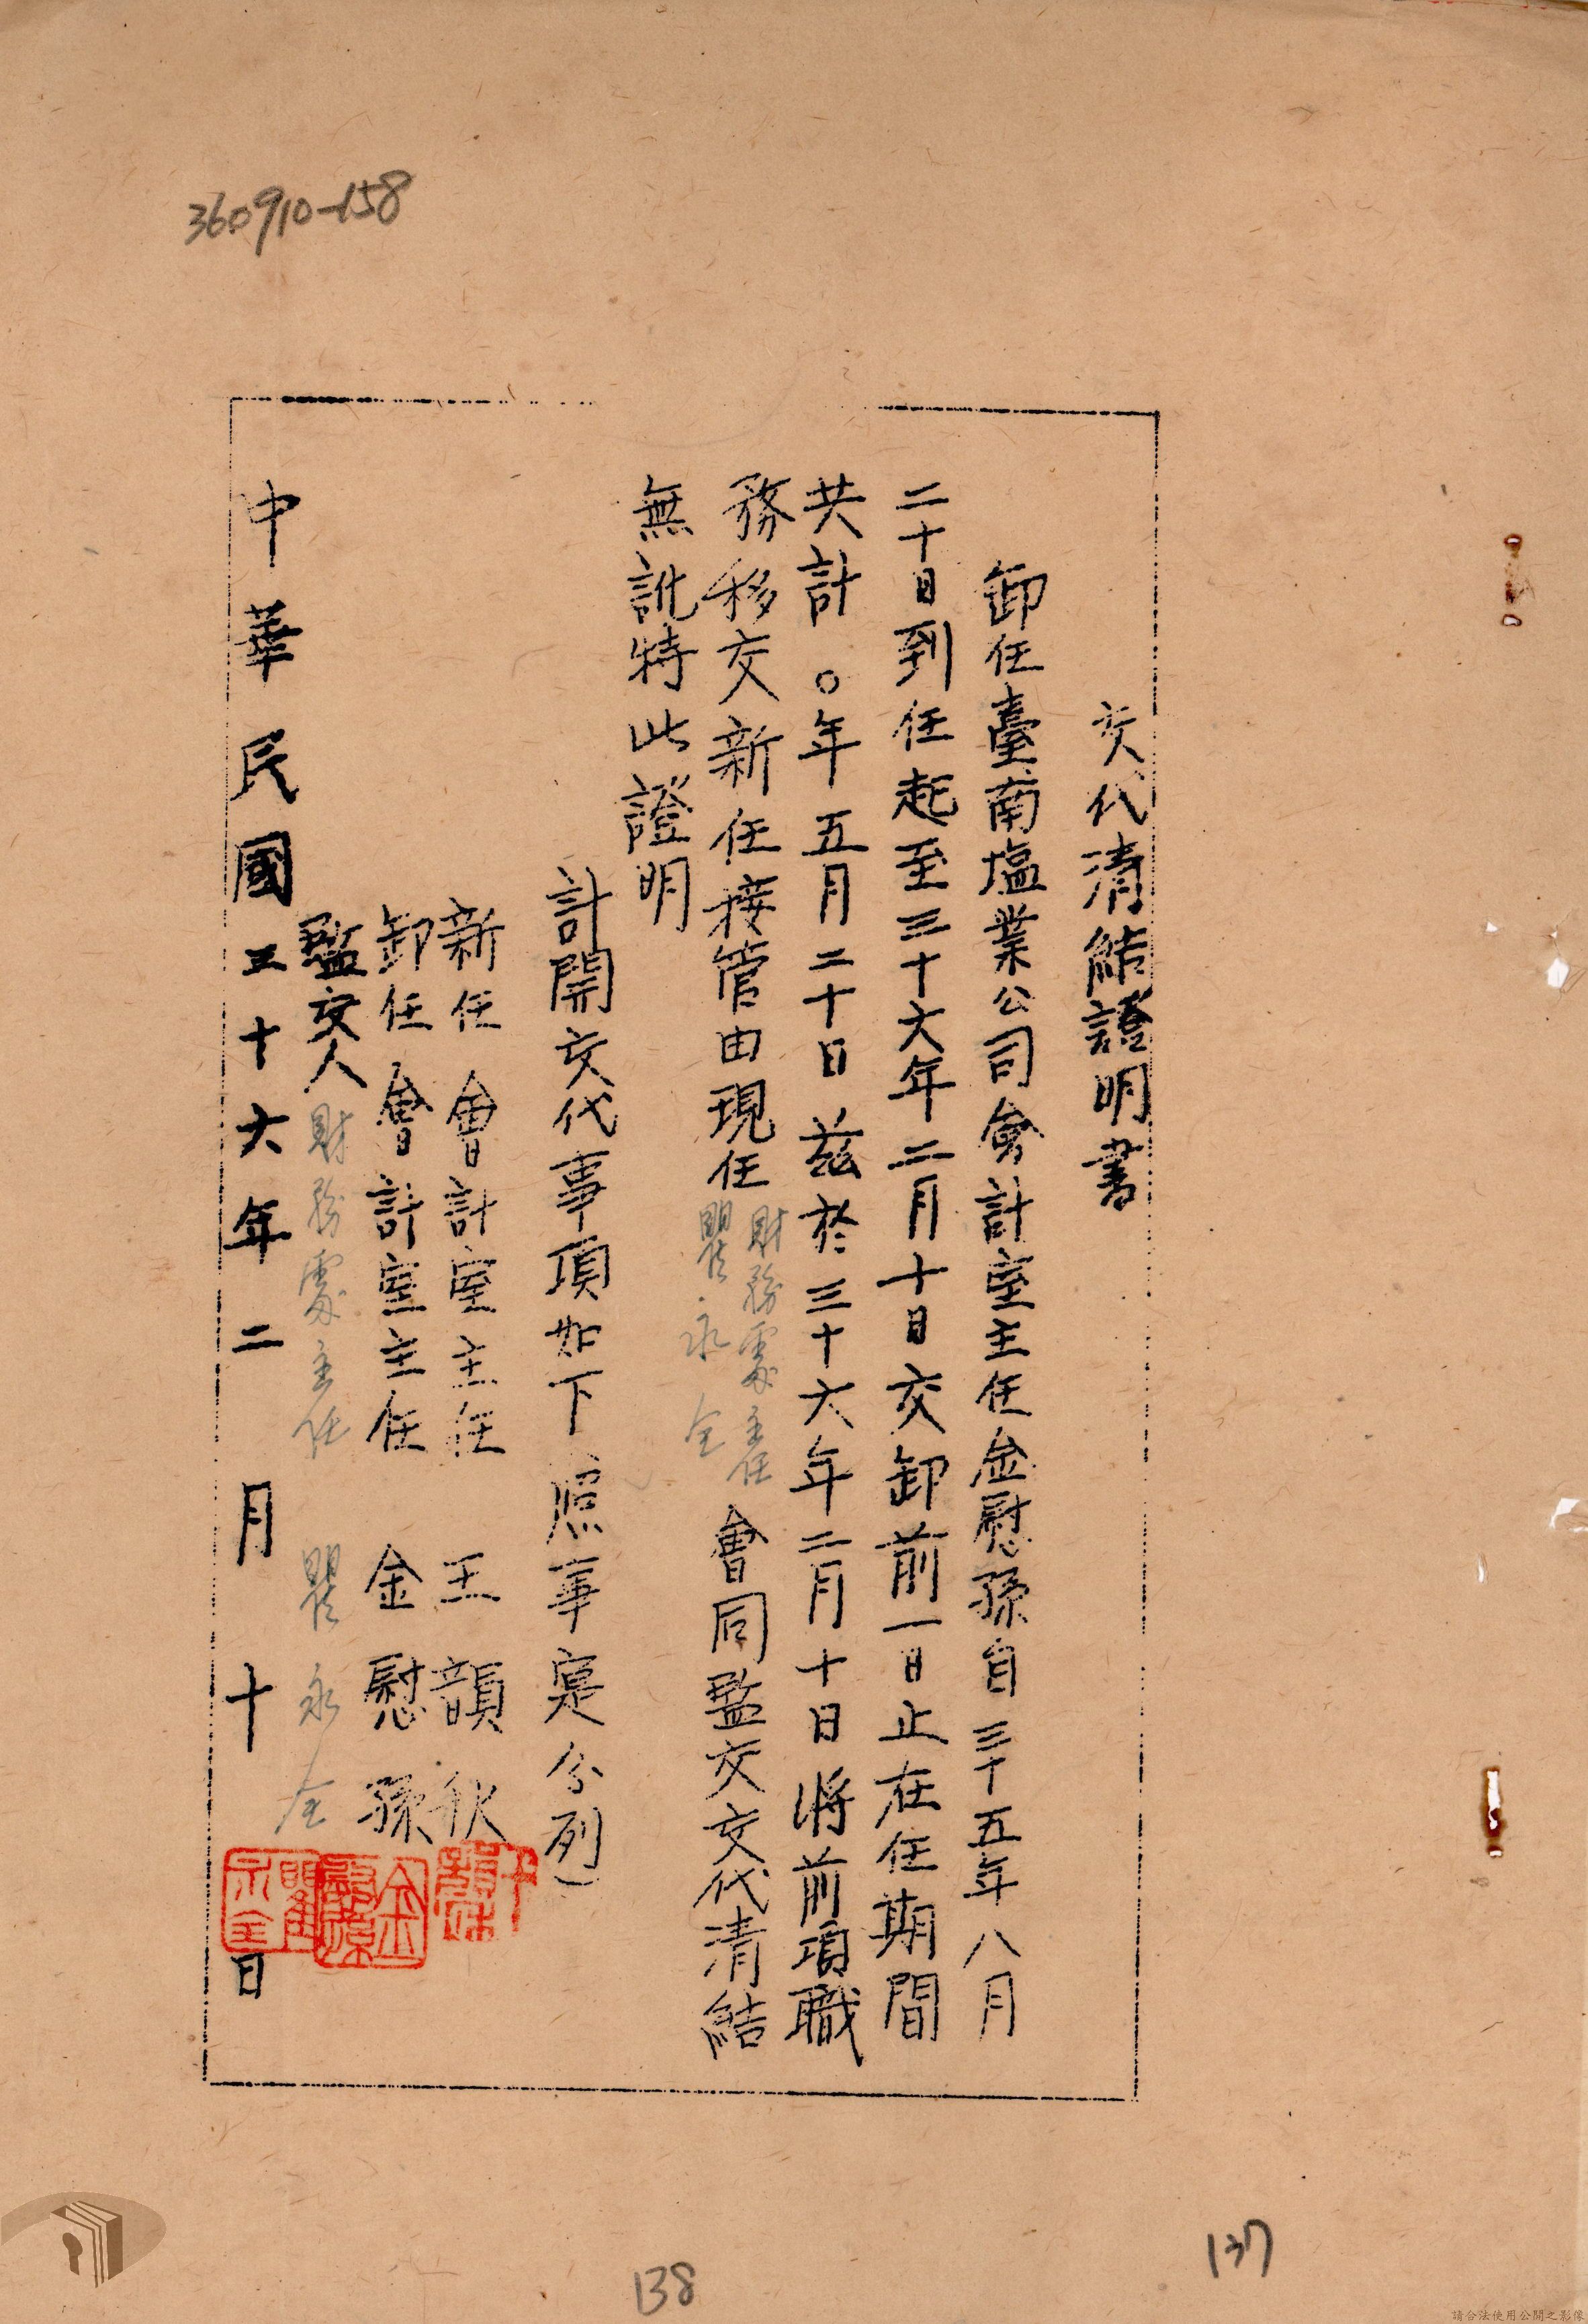 360910-158
交代清結證明書
卸任臺南塩業公司會計室主任金慰孫自三十五年八月
二十日到任起至三十六年二月十日交卸前一日止在任期間
共計 〇年五月二十日 茲於三十六年二月十日將前項職
務移交新任接管由現任財務處主任瞿永全會同監交交代清結
無訛特此證明
計開交代事項如下(照事寔分列)
新任會計室主任 王韻秋
卸任會計室主任 金慰孫
監交人財務處主任 瞿永全
中華民國三十六年二月十日
137
138
請合法使用公開之影像